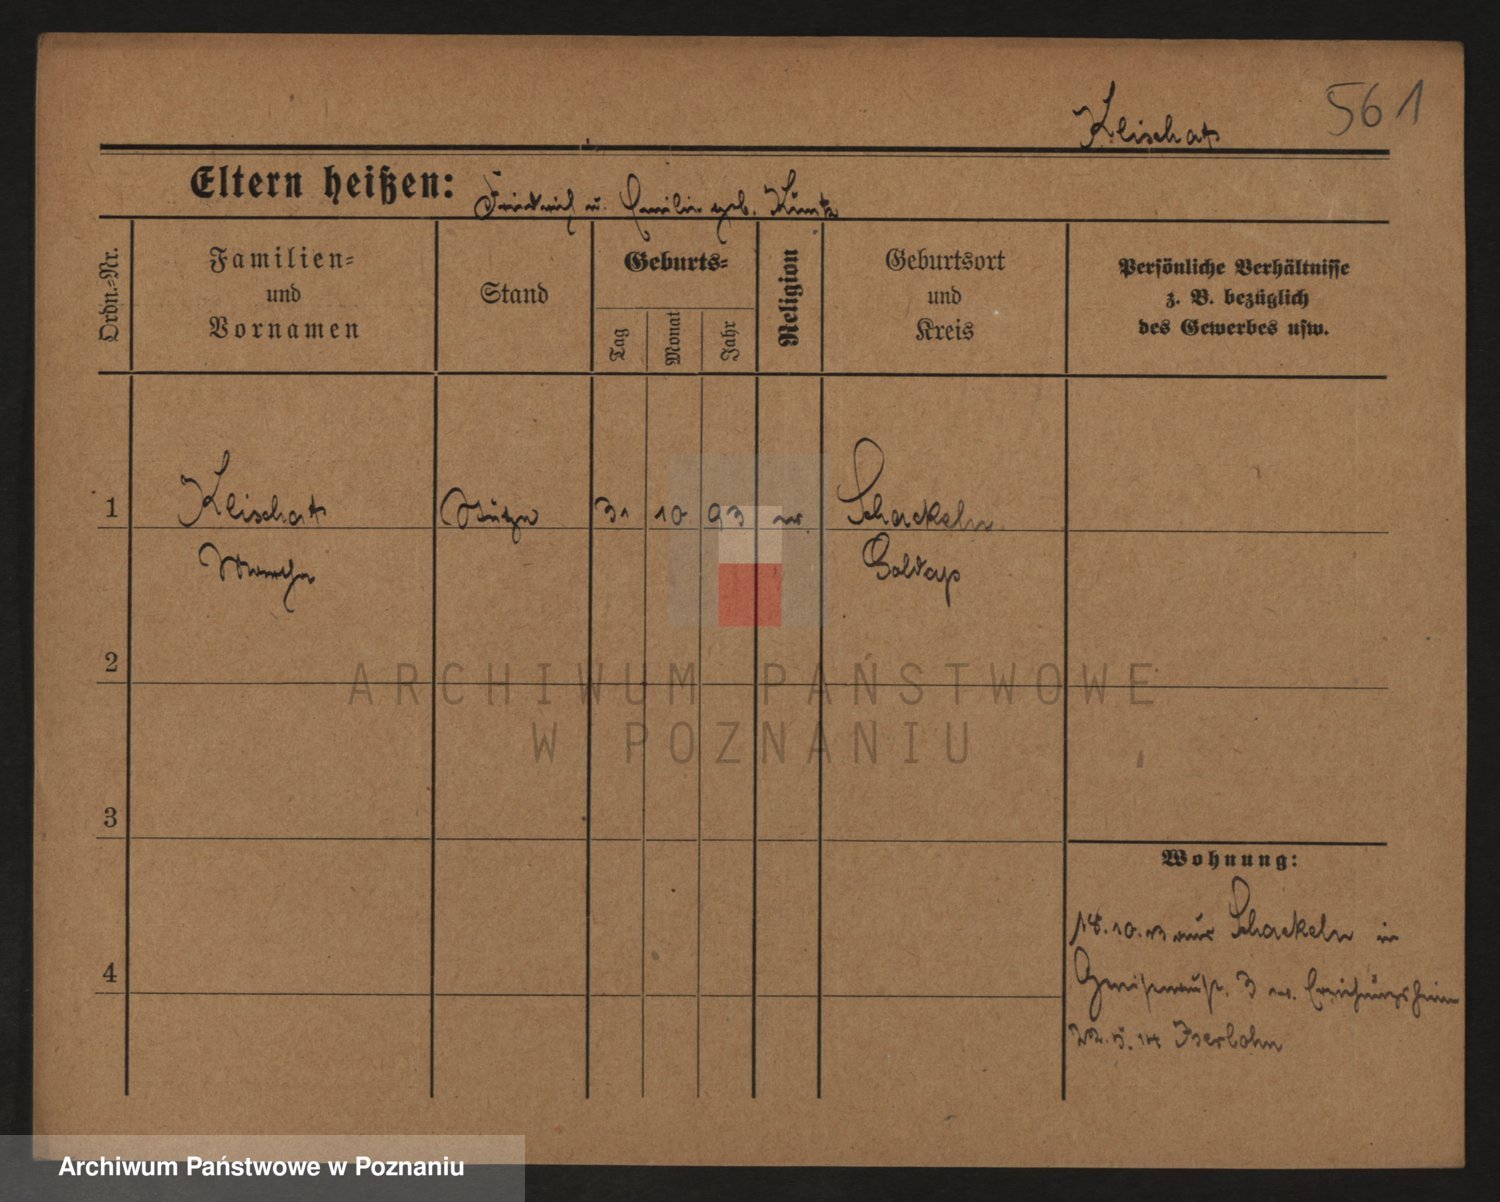 561
Klischat
Eltern heißen: Friedrich u. Emilie geb. Kuntz
Ordn.-Nr.
Familien-
und
Vornamen
Stand
Geburts-
Tag
Monat
Jahr
Religion
Geburtsort
und
Kreis
Persönliche Verhältnisse
z. B. bezüglich
des Gewerbes usw.
1 Klischat 31 10 93 Schackeln
Goldap
2
ARCHIWUM PAŃSTWOWE
W POZNANIU
3
Wohnung:
18.10.13 aus Schackeln in
4
3 Erziehungsheim
22.5.14 Iserlohn
Archiwum Państwowe w Poznaniu